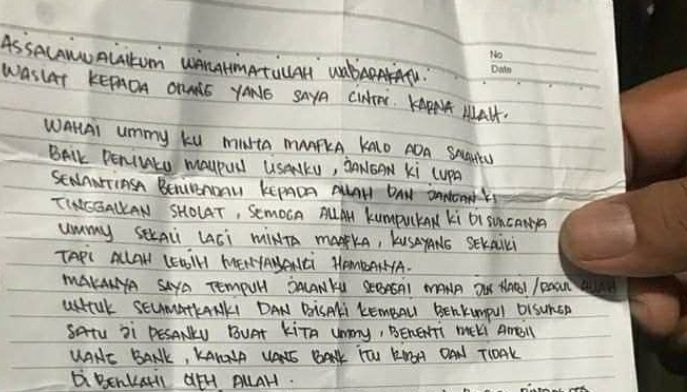 ASSALAMUALAIKUM WARAHMATULLAH WABARAKATU.
No
Date
WASIAT KEPADA ORANG YANG SAYA CINTAI KARNA ALLAH.
WAHAI UMMY KU MINTA MAAFKA KALO ADA SALAHKU
BAIK PERILAKU MAUPUN LISANKU, JANGAN KI LUPA
SENANTIASA BERIBADAH KEPADA ALLAH DAN JANGAN KI
TINGGALKAN SHOLAT, SEMOGA ALLAH KUMPULKAN KI DI SURGANYA
UMMY SEKALI LAGI MINTA MAAFKA, KUSAYANG SEKALIKI
TAPI ALLAH LEBIH MENYAYANGI HAMBANYA.
MAKANYA SAYA TEMPUH JALANKU SEBAGAI MANA NABI / RASUL ALLAH
UNTUK SELAMATKANKI DAN BISAKI KEMBALI BERKUMPUL DISURGA
SATU JI PESANKU BUAT KITA UMMY, BERENTI MEKI AMBIL
UANG BANK, KARNA UANG BANK ITU RIBA DAN TIDAK
DI BERKAHI OLEH ALLAH.